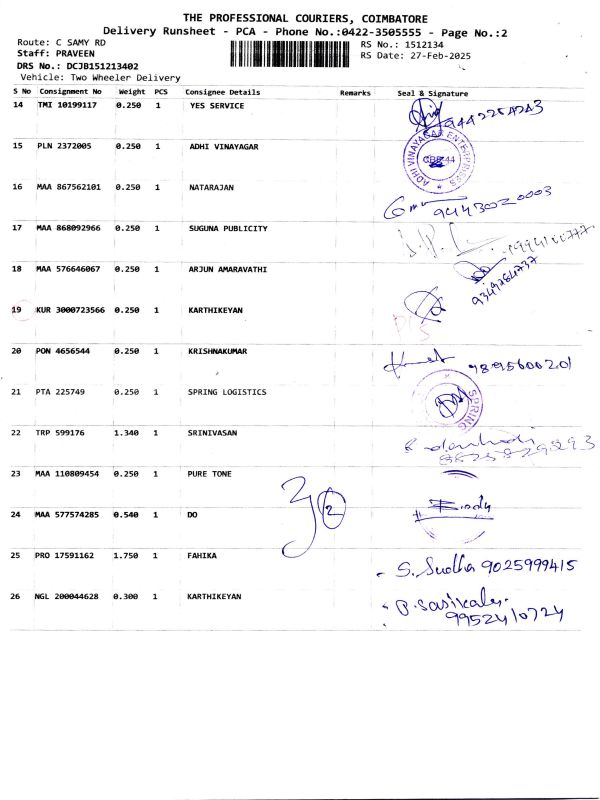 THE PROFESSIONAL COURIERS, COIMBATORE
Delivery Runsheet - PCA - Phone No.:0422-3505555 - Page No.:2
Route: C SAMY RD
Staff: PRAVEEN
DRS No.: DCJB151213402
Vehicle: Two Wheeler Delivery
RS No.: 1512134
RS Date: 27-Feb-2025
S No Consignment No Weight PCS Consignee Details Remarks Seal & Signature
14 TMI 10199117 0.250 1 YES SERVICE
15 PLN 2372005 0.250 1 ADHI VINAYAGAR
ADHI VINAYAGAR ENTERPRISES
CBE-44
16 MAA 867562101 0.250 1 NATARAJAN
9443020003
17 MAA 868092966 0.250 1 SUGUNA PUBLICITY
18 MAA 576646067 0.250 1 ARJUN AMARAVATHI
9349264737
19 KUR 3000723566 0.250 1 KARTHIKEYAN
20 PON 4656544 0.250 1 KRISHNAKUMAR
9895600201
21 PTA 225749 0.250 1 SPRING LOGISTICS
SPRING
22 TRP 599176 1.340 1 SRINIVASAN
23 MAA 110809454 0.250 1 PURE TONE
24 MAA 577574285 0.540 1 DO
2
25 PRO 17591162 1.750 1 FAHIKA
S. Sudha 9025999415
26 NGL 200044628 0.300 1 KARTHIKEYAN
P. Sasikala.
9952410724